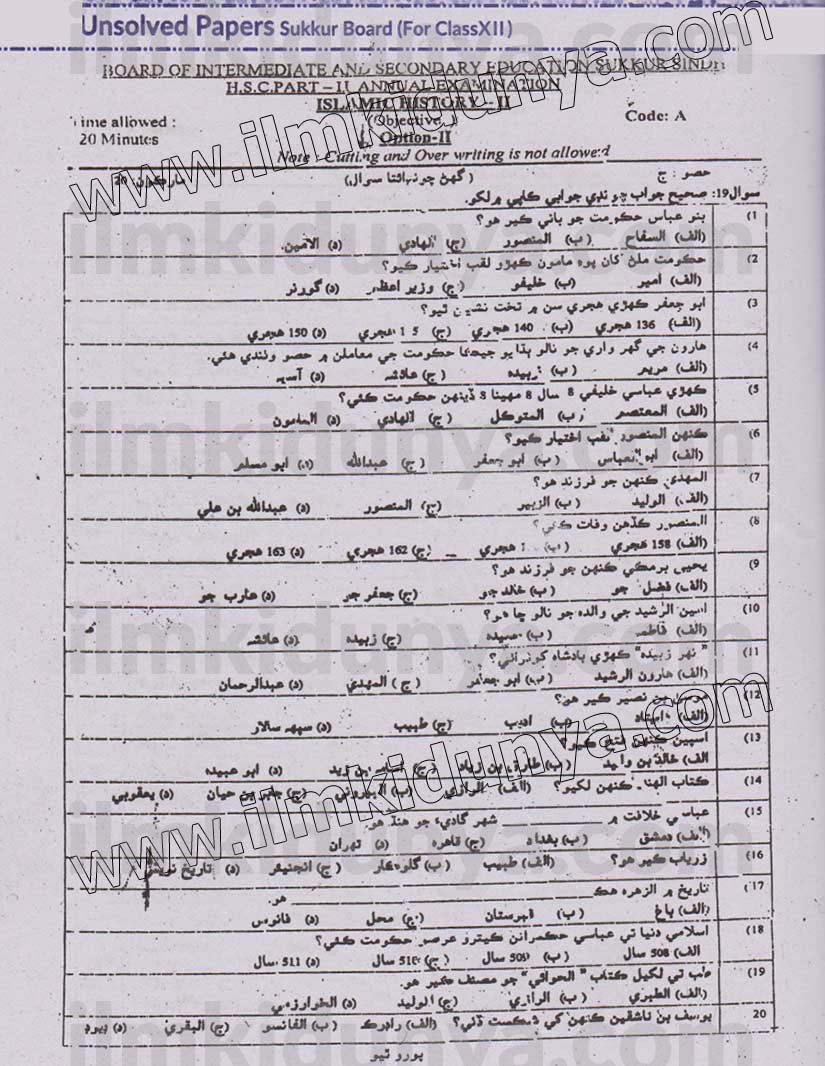 Unsolved Papers Sukkur Board (For ClassXII)
BOARD OF INTERMEDIATE AND SECONDARY EDUCATION SUKKUR SINDH
H.S.C.PART – II ANNUAL EXAMINATION
ISLAMIC HISTORY – II
ime allowed : (Objective ) Code: A
20 Minutes Option-II
Note : Cutting and Over writing is not allowed
حصو : ج (گھڻ چونڊائتا سوال) مارڪون: 20
سوال19: صحيح جواب چونڊي جوابي ڪاپي ۾ لکو.
(1 بنو عباس حڪومت جو باني ڪير هو؟
(الف) السفاح (ب) المنصور (ج) الهادي (د) الامين
(2 حڪومت ملڻ کان پوءِ مامون ڪهڙو لقب اختيار ڪيو؟
(الف) امير (ب) خليفو (ج) وزير اعظم (د) گورنر
(3 ابو جعفر ڪهڙي هجري سن ۾ تخت نشين ٿيو؟
(الف) 136 هجري (ب) 140 هجري (ج) هجري (د) 150 هجري
(4 هارون جي گهر واري جو نالو ٻڌايو جيڪا حڪومت جي معاملن ۾ حصو وٺندي هئي.
(الف) مريم (ب) زبيده (ج) عائشه (د) آسيه
(5 ڪهڙي عباسي خليفي 8 سال 8 مهينا 8 ڏينهن حڪومت ڪئي؟
(الف) المعتصم (ب) المتوڪل (ج) الهادي (د) المامون
(6 ڪنهن المنصور لقب اختيار ڪيو؟
(الف) ابو العباس (ب) ابو جعفر (ج) عبدالله (د) ابو مسلم
(7 المهدي ڪنهن جو فرزند هو؟
(الف) الوليد (ب) الزبير (ج) المنصور (د) عبدالله بن علي
(8 المنصور ڪڏهن وفات ڪئي؟
(الف) 158 هجري (ب) هجري (ج) 162 هجري (د) 163 هجري
(9 يحيىٰ برمڪي ڪنهن جو فرزند هو؟
(الف) فضل جو (ب) خالد جو (ج) جعفر جو (د) هارب جو
(10 امين الرشيد جي والده جو نالو ڇا هو؟
(الف) فاطمه (ب) حميده (ج) زبيده (د) عائشه
(11 " نهر زبيده" ڪهڙي بادشاه کوٽرائي؟
(الف) هارون الرشيد (ب) ابو جعفر (ج) المهدي (د) عبدالرحمان
(12 موسيٰ بن نصير ڪير هو؟
(الف) استاد (ب) اديب (ج) طبيب (د) سپھ سالار
(13 اسپين ڪنهن فتح ڪيو؟
الف) خالد بن وليد (ب) طارق بن زياد (ج) اسامه بن زيد (د) ابو عبيده
(14 ڪتاب الهند ڪنهن لکيو؟ (الف) الرازي (ب) البيروني (ج) جابر بن حيان (د) يعقوبي
(15 عباسي خلافت ۾ ________ شهر گاديءَ جو هنڌ هو.
(الف) دمشق (ب) بغداد (ج) قاهره (د) تهران
(16 زرياب ڪير هو؟ (الف) طبيب (ب) گلوڪار (ج) انجنيئر (د) تاريخ نويس
(17 تاريخ ۾ الزهره هڪ ________ هو.
(الف) باغ (ب) قبرستان (ج) محل (د) فانوس
(18 اسلامي دنيا تي عباسي حڪمرانن ڪيترو عرصو حڪومت ڪئي؟
الف) 508 سال (ب) 509 سال (ج) 510 سال (د) 511 سال
(19 طب تي لکيل ڪتاب " الحوائي" جو مصنف ڪير هو؟
(الف) الطبري (ب) الرازي (ج) الوليد (د) الخوارزمي
20 يوسف بن تاشقين ڪنهن کي شڪست ڏني؟ (الف) راڊرڪ (ب) الفانسو (ج) البقري (د)
پورو ٿيو
www.ilmkidunya.com
www.ilmkidunya.com
ilmkidunya.com
ilmkidunya.com
ilmkidunya.com
ilmkidunya.com
ilmkidunya.com